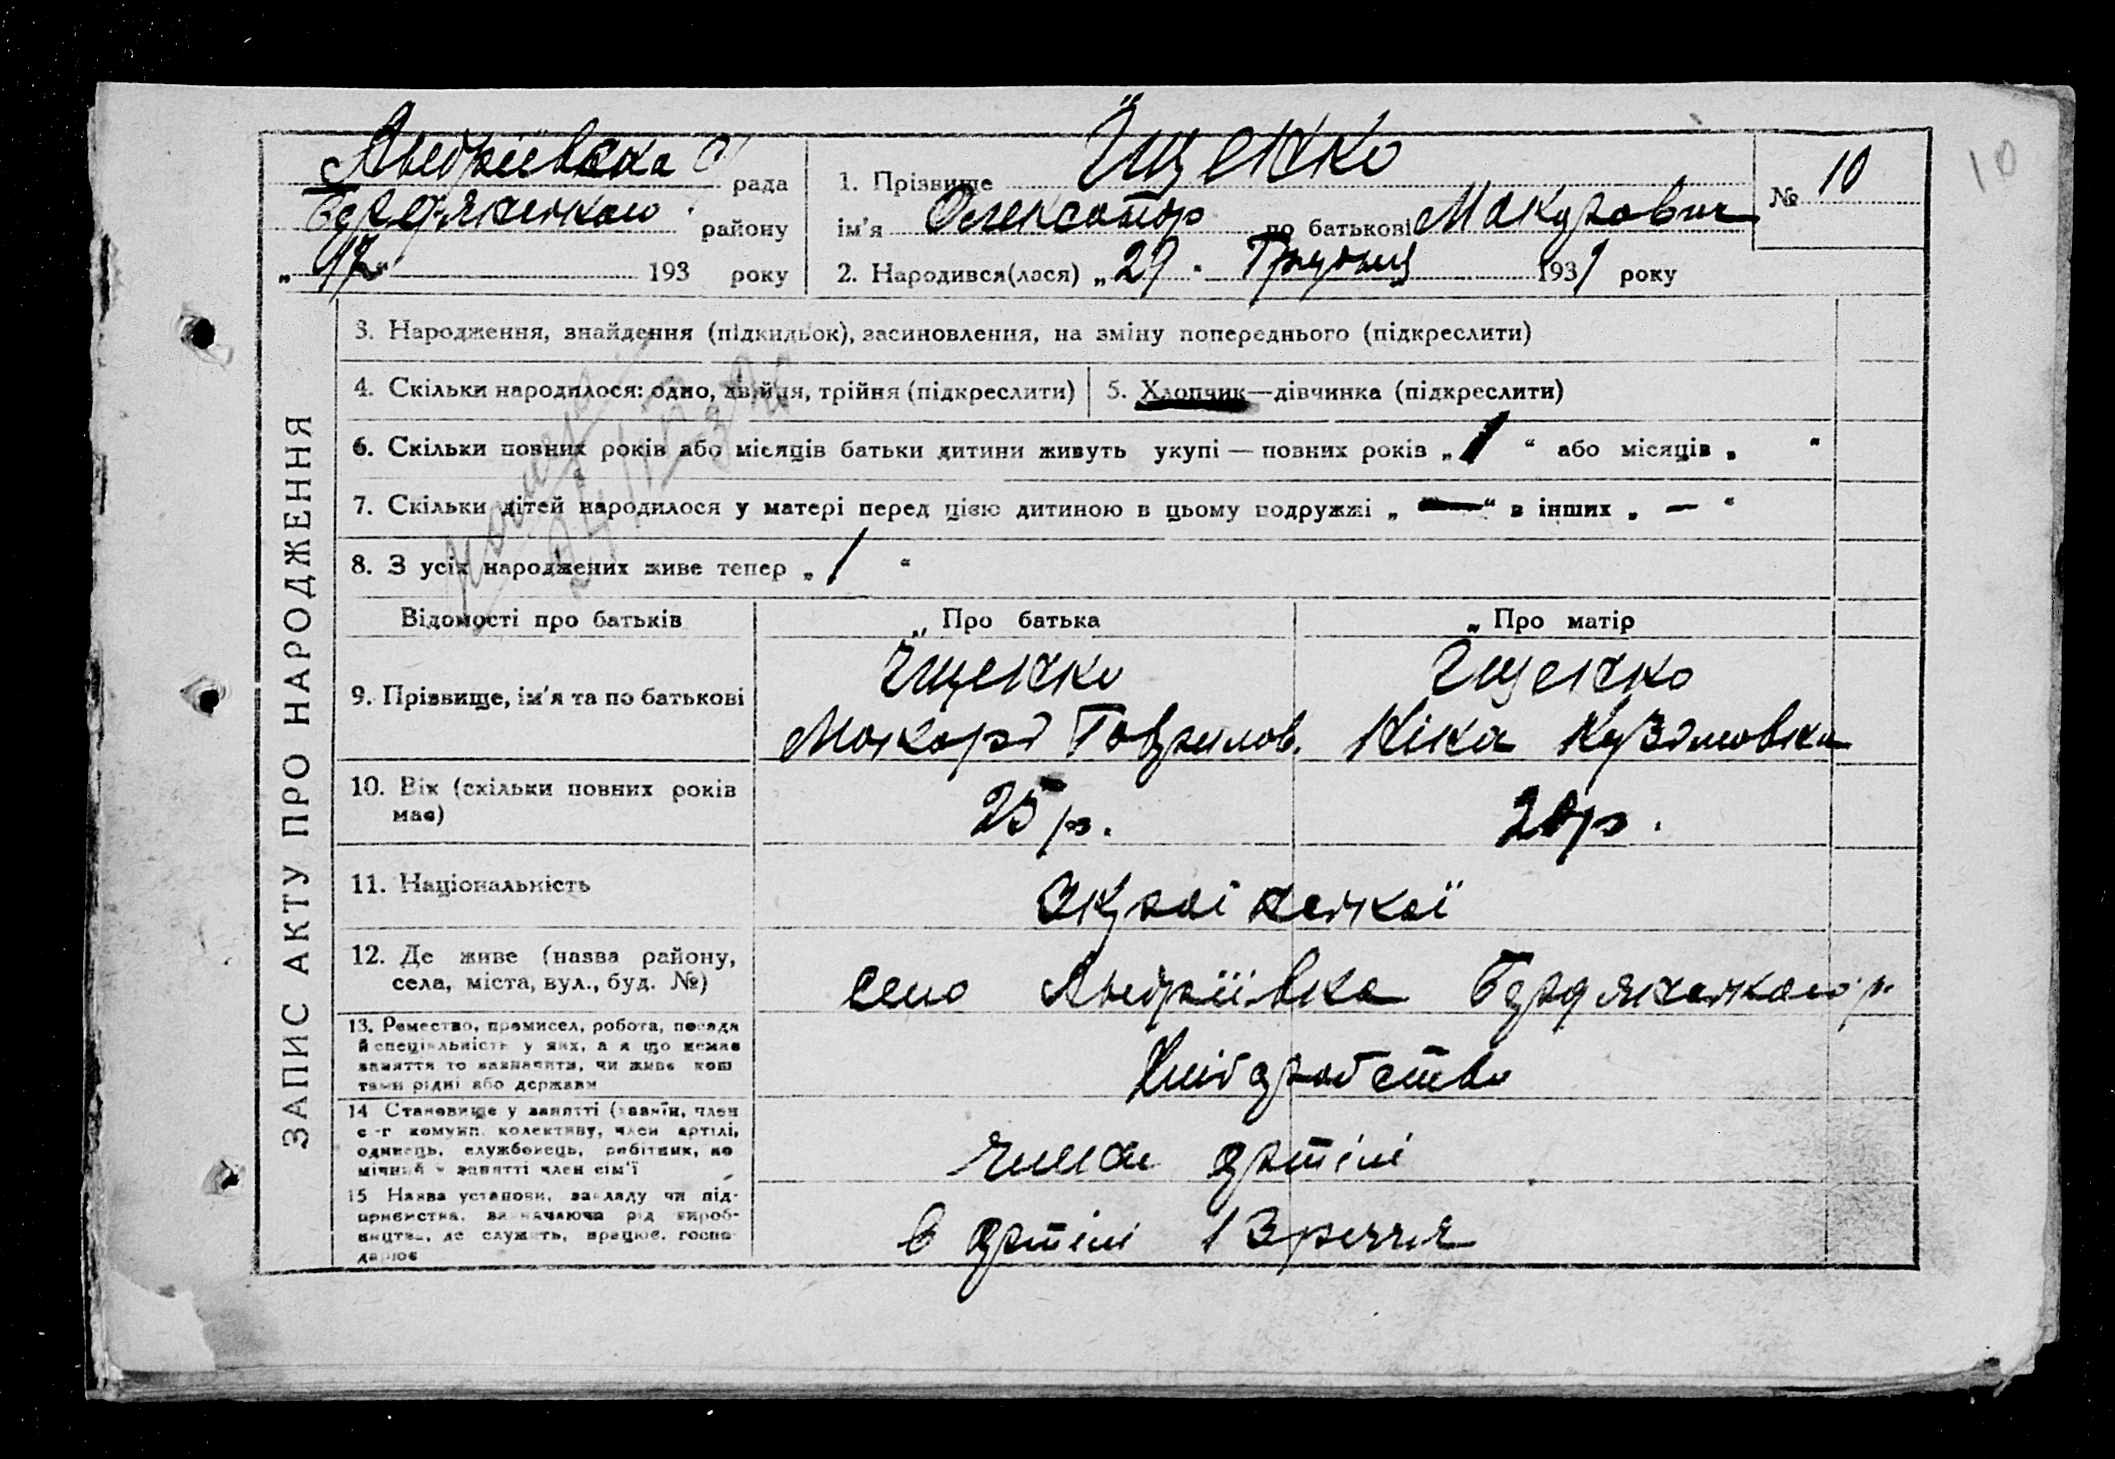 Андріївська рада
Бердянського району
" 193 року
1. Прізвище Їщенко
№ 10
10
ім'я Олексантр по батькові Макарович
2. Народився(лася) „29" Грудня 1931 року
3. Народження, знайдення (підкидьок), засиновлення, на зміну попереднього (підкреслити)
4. Скільки народилося: одно, двійня, трійня (підкреслити)
5. Хлопчик—дівчинка (підкреслити)
6. Скільки повних років або місяців батьки дитини живуть укупі — повних років „1" або місяців „ "
7. Скільки дітей народилося у матері перед цією дитиною в цьому подружжі „—" в інших „—"
8. З усіх народжених живе тепер „1"
ЗАПИС АКТУ ПРО НАРОДЖЕННЯ
Відомості про батьків
Про батька
Про матір
9. Прізвище, ім'я та по батькові
Їщенко
Макарь Гаврилов.
Їщенко
Ніна Кузьмовна
10. Вік (скільки повних років
має)
25 р.
20 р.
11. Національність
Украінської
12. Де живе (назва району,
села, міста, вул., буд. №)
село Андріївка Бердянського р.
13. Ремество, промисел, робота, посада
й спеціяльність у них, а я що немає
заняття то зазначити, чи живе кош
тами рідні або держави
Хлібаробство
14 Становище у занятті (хазяїн, член
с-г комуни, колективу, член артілі,
одинець, службовець, робітник, по
мічний у занятті член сім'ї
член артілі
15 Назва установи, закладу чи під-
приємства, визначаючи рід вироб-
ництва, де служить, працює, госпо-
дарює
в артілі 13 річчя